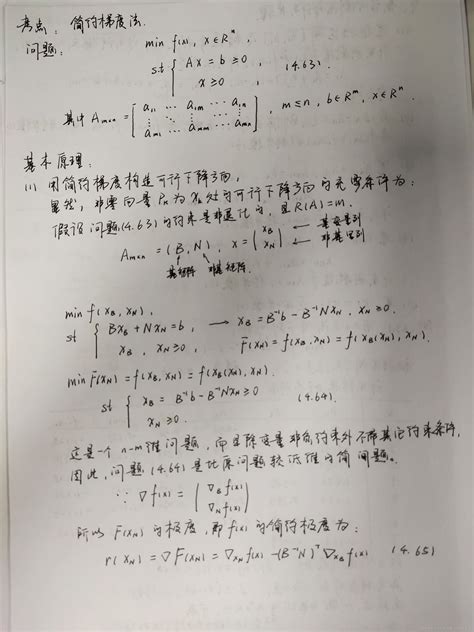 考点：简约梯度法.
问题：
min f(x), x∈Rⁿ,
st { Ax = b ≥ 0, (4.63)
x ≥ 0,
其中 Aₘₓₙ = [ a₁₁ ··· a₁ₘ ··· a₁ₙ
⋮ ⋱ ⋮ ⋱ ⋮
aₘ₁ ··· aₘₘ ··· aₘₙ ], m≤n, b∈Rᵐ, x∈Rⁿ.
基本原理：
(1) 用简约梯度构造可行下降方向,
显然，非零向量Pₖ为xₖ处的可行下降方向的充要条件为：
假设问题(4.63)的约束是非退化的，且R(A)=m.
Aₘₓₙ = (B, N), x = ( x_B ← 基变量列
x_N ) ← 非基变列
基矩阵 非基矩阵
min f(x_B, x_N),
st { Bx_B + Nx_N = b, → x_B = B⁻¹b − B⁻¹Nx_N, x_N ≥ 0.
x_B, x_N ≥ 0, F(x_N) = f(x_B, x_N) = f(x_B(x_N), x_N)
min F(x_N) = f(x_B, x_N) = f(x_B(x_N), x_N).
st { x_B = B⁻¹b − B⁻¹Nx_N ≥ 0 (4.64).
x_N ≥ 0.
这是一个 n−m 维问题，而且除变量非负约束外不带其它约束条件,
因此，问题(4.64)是比原问题较低维的简单问题。
∵ ∇f(x) = ( ∇_B f(x)
∇_N f(x) )
所以 F(x_N)的梯度，即 f(x)的简约梯度为：
r(x_N) = ∇F(x_N) = ∇x_N f(x) − (B⁻¹N)ᵀ∇x_B f(x) (4.65)